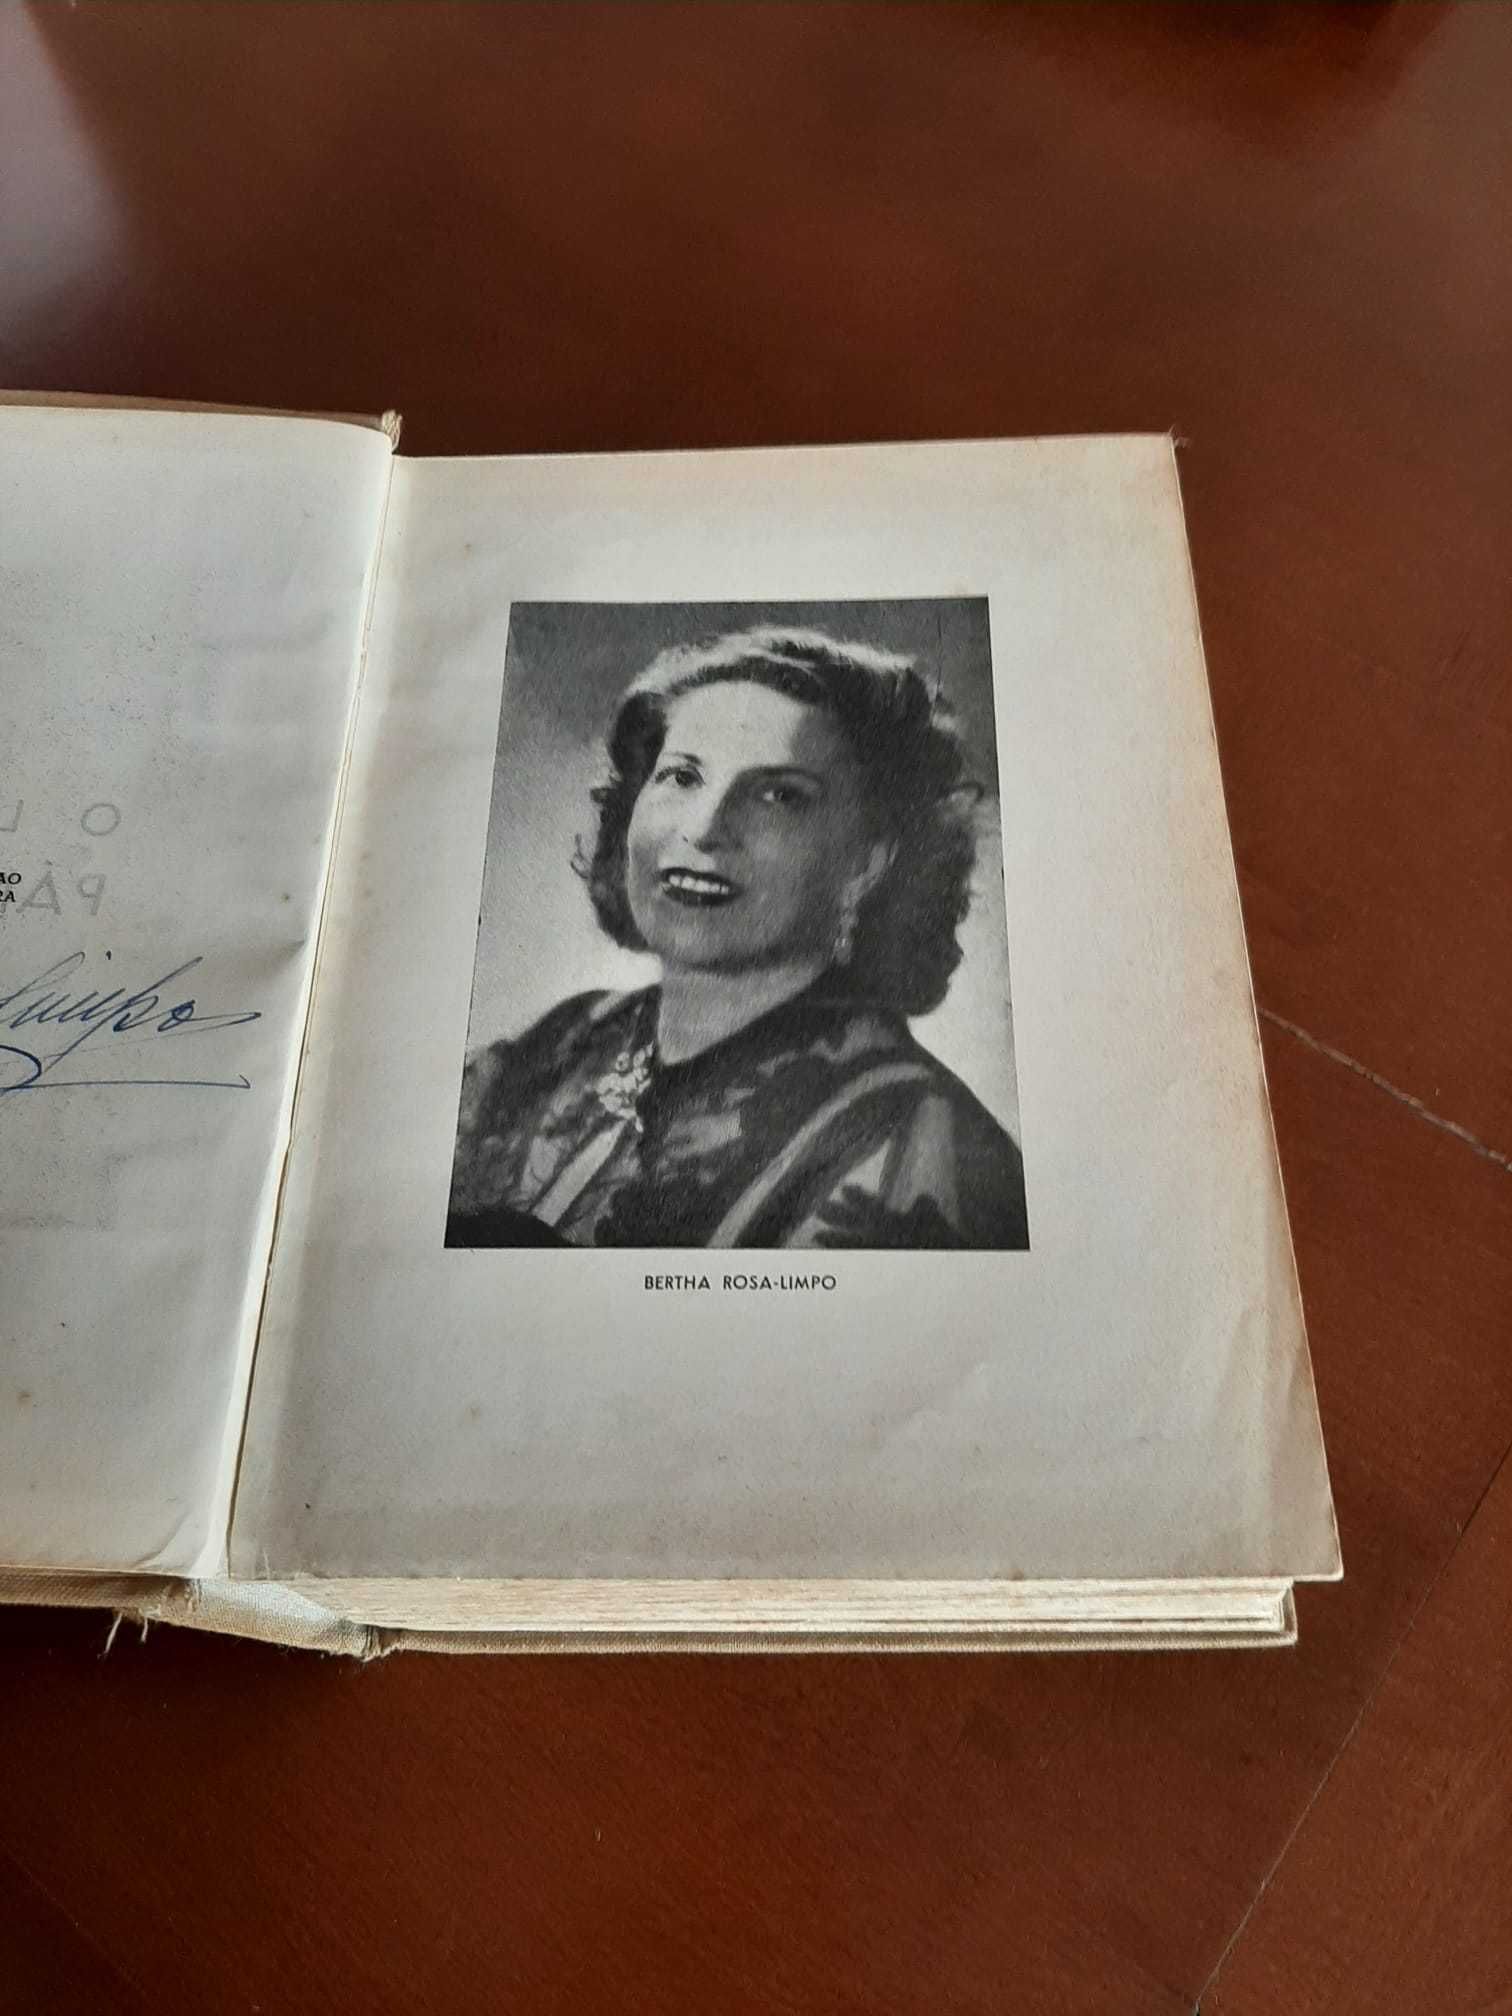 O L
PA
AO
RA
Limpo
BERTHA ROSA-LIMPO